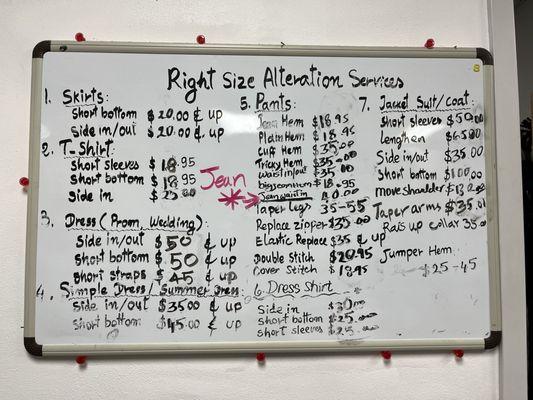 Right Size Alteration Services
1. Skirts:
Short bottom $20.00 & up
Side in/out $20.00 & up
2. T-Shirt:
Short sleeves $18.95
Short bottom $18.95
Side in $25.00
3. Dress (Prom, Wedding)
Side in/out $50 & up
Short bottom $50 & up
Short straps $45 & up
4. Simple Dress/Summer Dress:
Side in/out $35.00 & up
Short bottom $45.00 & up
Jean
5. Pants:
Jean Hem $18.95
Plain Hem $18.95
Cuff Hem $35.00
Tricky Hem $35.00
Waist in/out $35.00
$18.95
Jean waist in 40.00
Taper legs 35-55
Replace zipper $35.00
Elastic Replace $35 & up
Double Stitch $20.95
Cover Stitch $18.95
6. Dress Shirt
Side in $30.00
Short bottom $25.00
Short sleeves $25.00
7. Jacket Suit/coat:
Short sleeves $50.00
Lengthen $65.00
Side in/out $35.00
Short bottom $100.00
move shoulder
Taper arms $35.00
Rais up collar 35.00
Jumper Hem:
$25-45